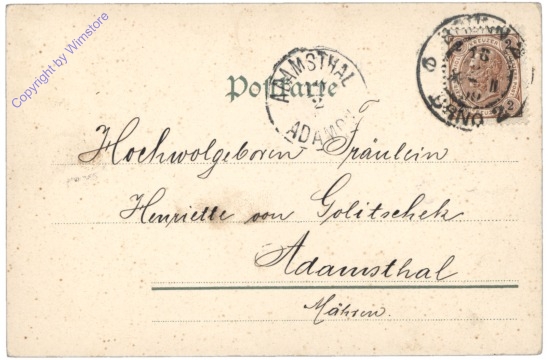 Copyright by Wimstore
Postkarte
ADAMSTHAL
ADAMOV
BRÜNN 2
BRNO 2
Hochwolgeboren Fräulein
Henriette von Golitschek
Adamsthal
Mähren.